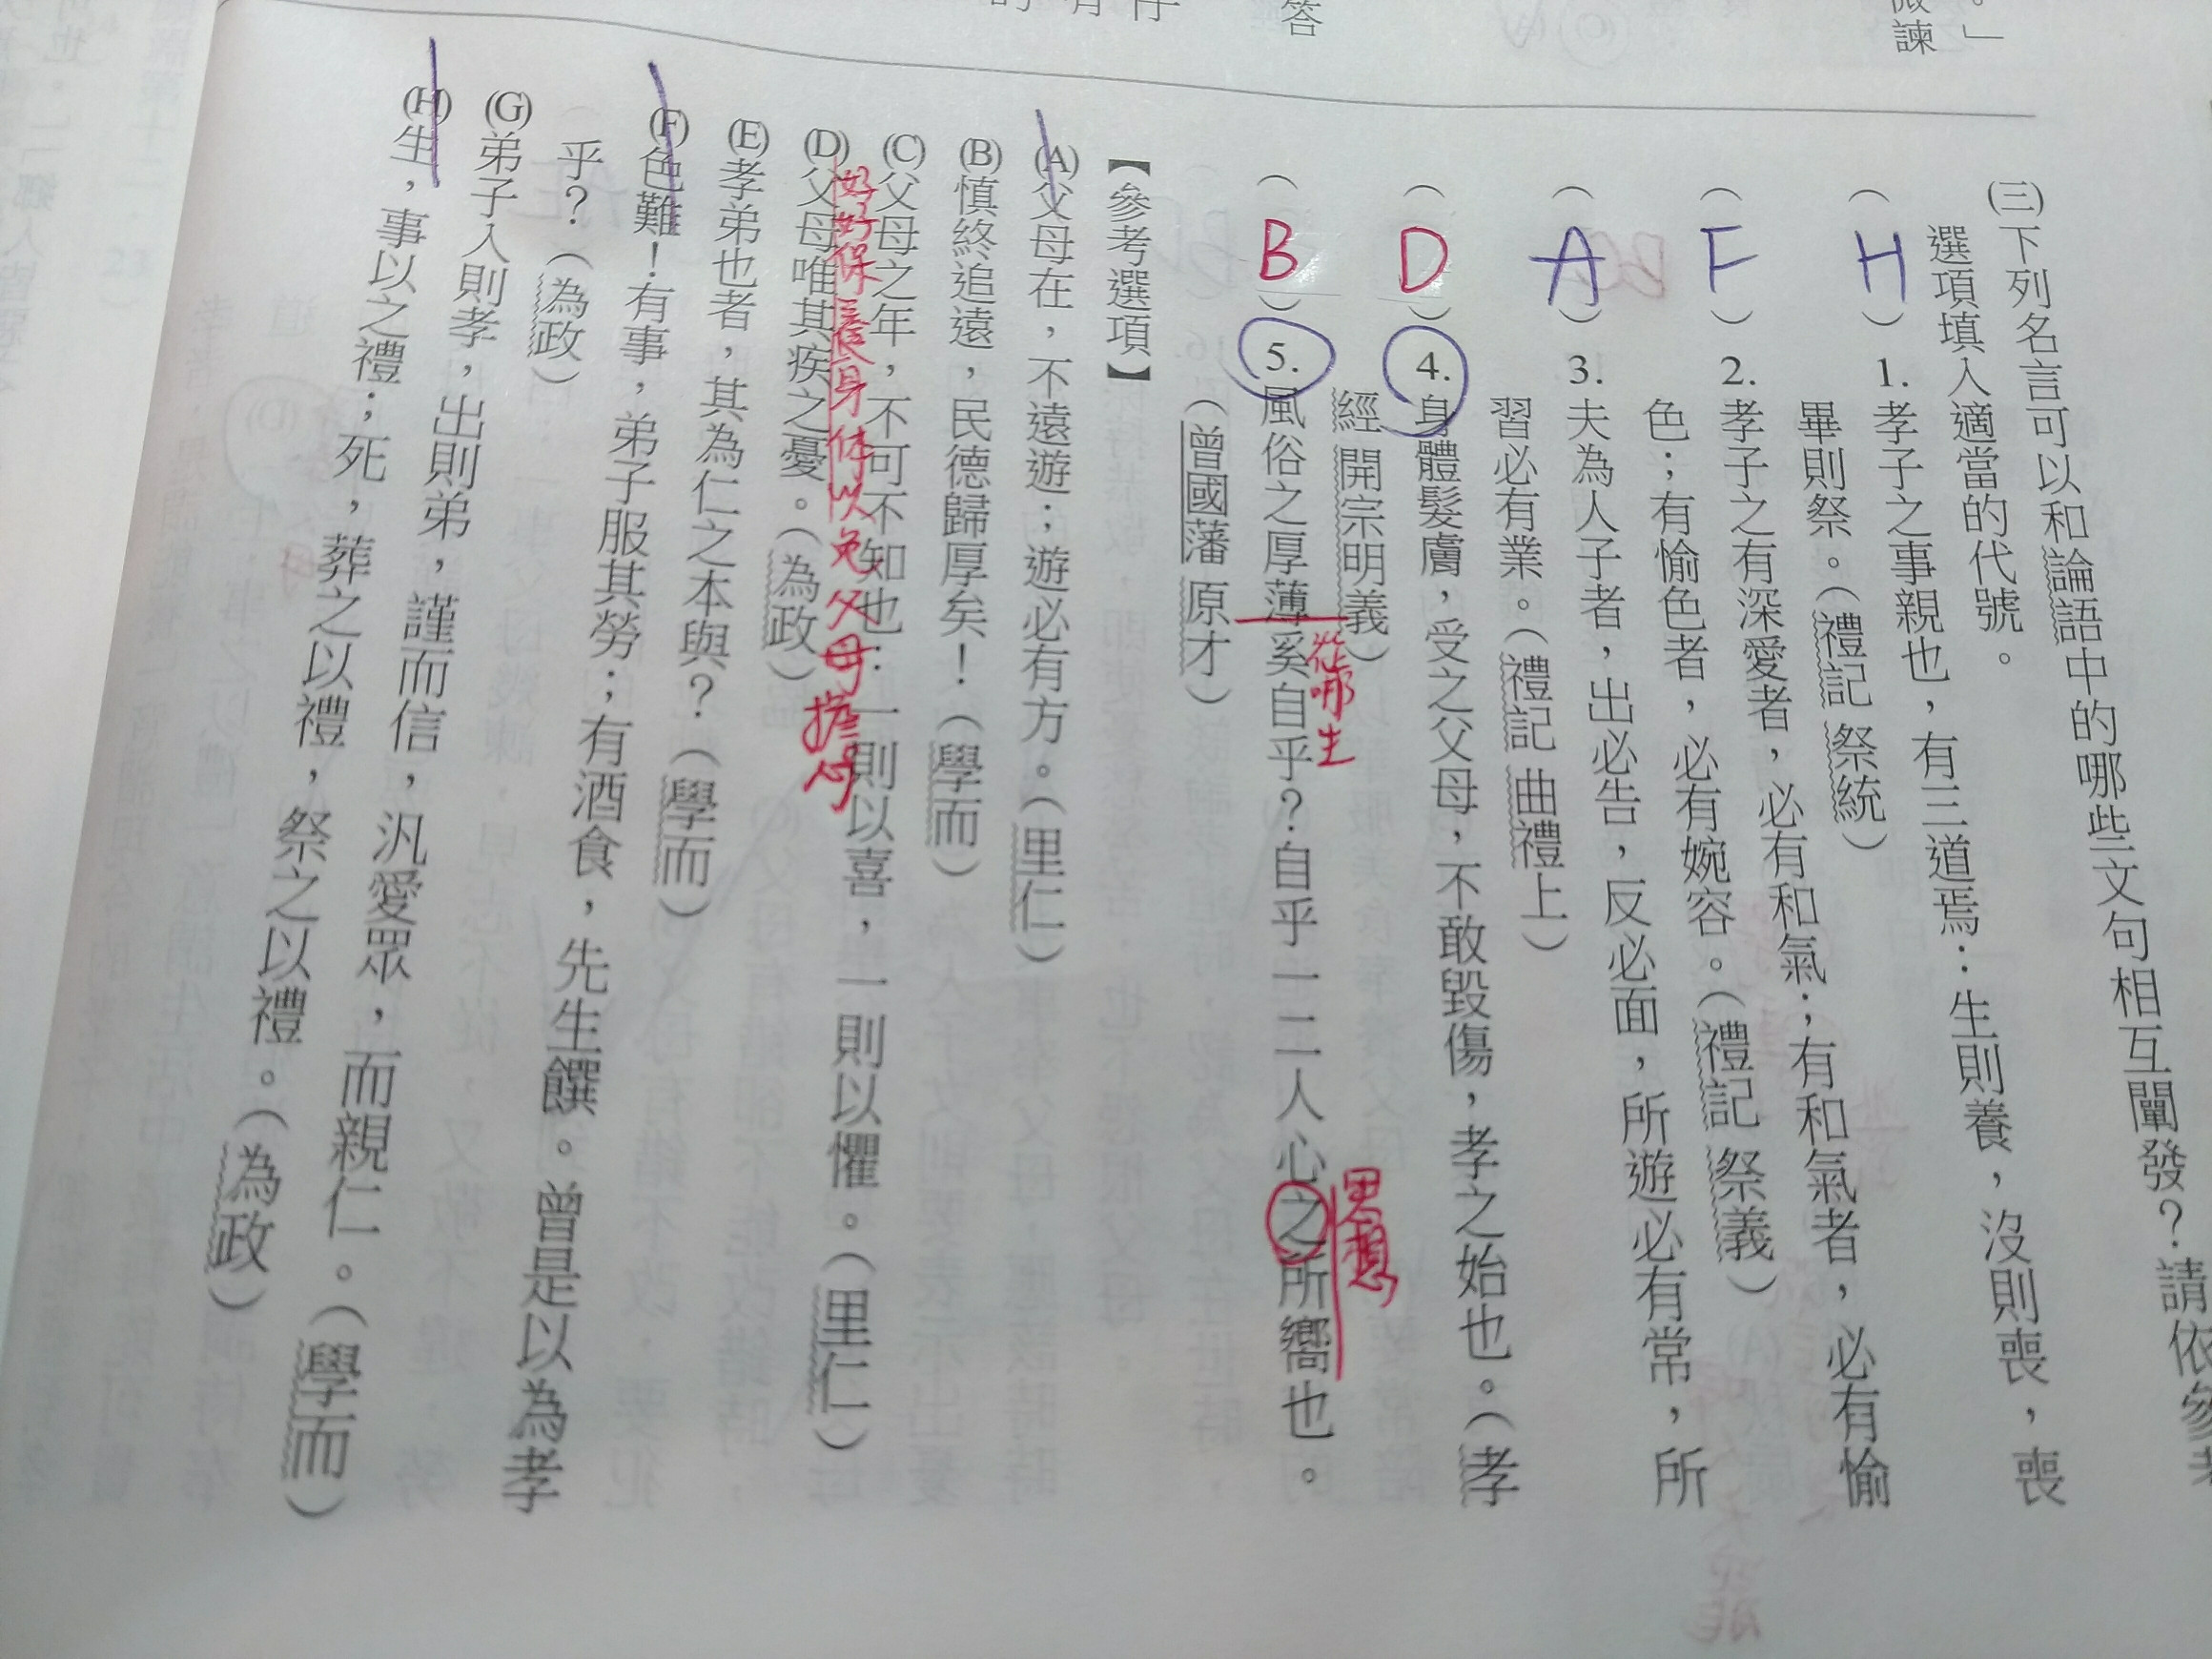 。」
微諫
答
的 有 仔
(三)下列名言可以和論語中的哪些文句相互闡發？請依參考
選項填入適當的代號。
（H）1.孝子之事親也，有三道焉：生則養，沒則喪，喪
畢則祭。（禮記 祭統）
（F）2.孝子之有深愛者，必有和氣；有和氣者，必有愉
色；有愉色者，必有婉容。（禮記 祭義）
（A）3.夫為人子者，出必告，反必面，所遊必有常，所
習必有業。（禮記 曲禮上）
（D）4.身體髮膚，受之父母，不敢毀傷，孝之始也。（孝
經 開宗明義）
從哪生
思想
（B）5.風俗之厚薄奚自乎？自乎一二人心之所嚮也。
（曾國藩 原才）
【參考選項】
(A)父母在，不遠遊；遊必有方。（里仁）
(B)慎終追遠，民德歸厚矣！（學而）
(C)父母之年，不可不知也：一則以喜，一則以懼。（里仁）
好好保養身体以免父母擔心
(D)父母唯其疾之憂。（為政）
(E)孝弟也者，其為仁之本與？（學而）
(F)色難！有事，弟子服其勞；有酒食，先生饌。曾是以為孝
乎？（為政）
(G)弟子入則孝，出則弟，謹而信，汎愛眾，而親仁。（學而）
(H)生，事以之禮；死，葬之以禮，祭之以禮。（為政）